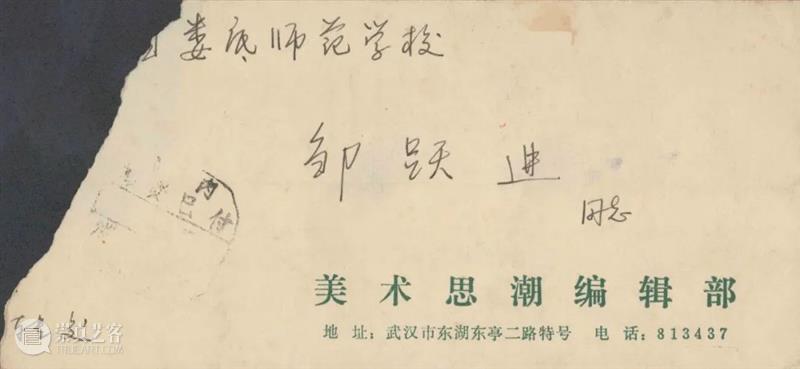 娄底师范学校
邹跃进
同志
内付
已
美术思潮编辑部
地址：武汉市东湖东亭二路特号 电话：813437
崇真艺客
TRUEART.COM